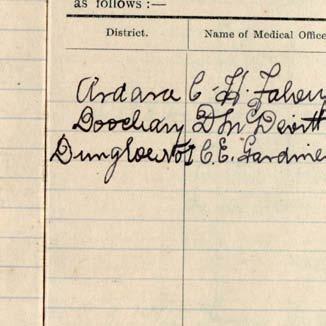 as follows :—
District. Name of Medical Office
Ardara C. H. Fahey
Doochary D McDevitt
Dungloe No 1 C. E. Gardine